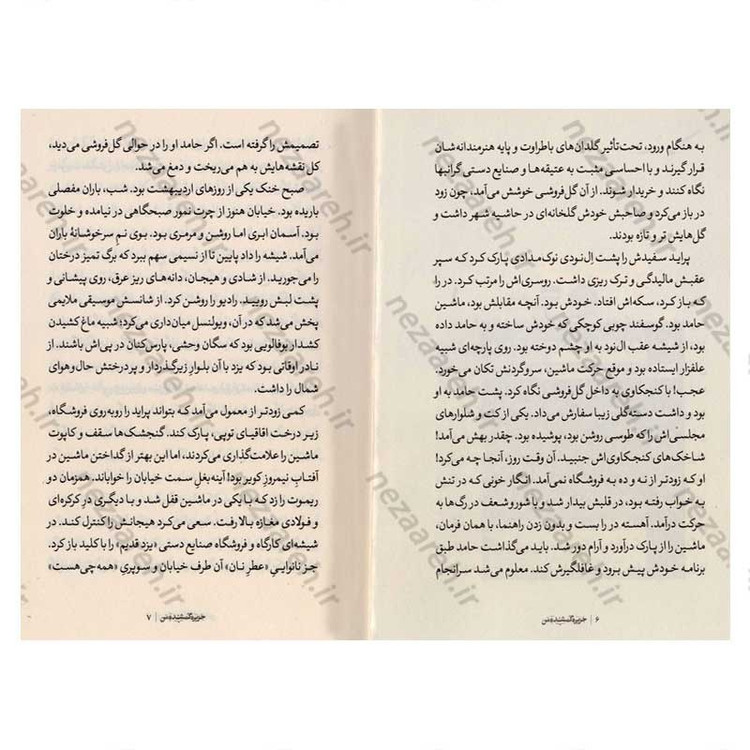 به هنگام ورود، تحت‌تأثیر گلدان‌های باطراوت و پایه هنرمندانه‌شان
قرار گیرند و با احساسی مثبت به عتیقه‌ها و صنایع دستی گرانبها
نگاه کنند و خریدار شوند. از آن گل‌فروشی خوشش می‌آمد، چون زود
در باز می‌کرد و صاحبش خودش گلخانه‌ای در حاشیه شهر داشت و
گل‌هایش تر و تازه بودند.
پراید سفیدش را پشت اِل‌نودی نوک‌مدادی پارک کرد که سپر
عقبش مالیدگی و ترک ریزی داشت. روسری‌اش را مرتب کرد. در را
که باز کرد، سکه‌اش افتاد. خودش بود. آنچه مقابلش بود، ماشین
حامد بود. گوسفند چوبی کوچکی که خودش ساخته و به حامد داده
بود، از شیشه عقب ال‌نود به او چشم دوخته بود. روی پارچه‌ای شبیه
علفزار ایستاده بود و موقع حرکت ماشین، سروگردنش تکان می‌خورد.
عجب! با کنجکاوی به داخل گل‌فروشی نگاه کرد. پشت حامد به او
بود و داشت دسته‌گلی زیبا سفارش می‌داد. یکی از کت و شلوارهای
مجلسی‌اش را که طوسی روشن بود، پوشیده بود. چقدر بهش می‌آمد!
شاخک‌های کنجکاوی‌اش جنبید. آن وقت روز، آنجا چه می‌کرد!
او که زودتر از نه و ده به فروشگاه نمی‌آمد. انگار خونی که در تنش
به خواب رفته بود، در قلبش بیدار شد و با شور و شعف در رگ‌ها به
حرکت درآمد. آهسته در را بست و بدون زدن راهنما، با همان فرمان،
ماشین را از پارک درآورد و آرام دور شد. باید می‌گذاشت حامد طبق
برنامه خودش پیش برود و غافلگیرش کند. معلوم می‌شد سرانجام
۶ | جزیره گمشده من
تصمیمش را گرفته است. اگر حامد او را در حوالی گل‌فروشی می‌دید،
کل نقشه‌هایش به هم می‌ریخت و دمغ می‌شد.
صبح خنک یکی از روزهای اردیبهشت بود. شب، باران مفصلی
باریده بود. خیابان هنوز از چرت نمور صبحگاهی در نیامده و خلوت
بود. آسمان ابری اما روشن و مرمری بود. بوی نم سرخوشانۀ باران
می‌آمد. شیشه را داد پایین تا از نسیمی سهم ببرد که برگ تمیز درختان
را می‌جورید. از شادی و هیجان، دانه‌های ریز عرق، روی پیشانی و
پشت لبش رویید. رادیو را روشن کرد. از شانسش موسیقی ملایمی
پخش می‌شد که در آن، ویولنسل میان‌داری می‌کرد؛ شبیه ماغ کشیدن
کشدار بوفالویی بود که سگان وحشی، پارس‌کنان در پی‌اش باشند. از
نادر اوقاتی بود که یزد با آن بلوار زیرگذردار و پردرختش حال وهوای
شمال را داشت.
کمی زودتر از معمول می‌آمد که بتواند پراید را روبه‌روی فروشگاه،
زیر درخت اقاقیای توپی، پارک کند. گنجشک‌ها سقف و کاپوت
ماشین را علامت‌گذاری می‌کردند، اما این بهتر از گداختن ماشین در
آفتابِ نیمروز کویر بود! آینه‌بغل سمت خیابان را خواباند. همزمان دو
ریموت را زد که با یکی در ماشین قفل شد و با دیگری در کرکره‌ای
و فولادی مغازه بالا رفت. سعی می‌کرد هیجانش را کنترل کند. در
شیشه‌ای کارگاه و فروشگاه صنایع دستی «یزد قدیم» را با کلید باز کرد.
جز نانوایی «عطر نان» آن طرف خیابان و سوپری «همه‌چی‌هست»
جزیره گمشده من | ۷
nezaareh.ir
nezaareh.ir
nezaareh.ir
nezaareh.ir
nezaareh.ir
nezaareh.ir